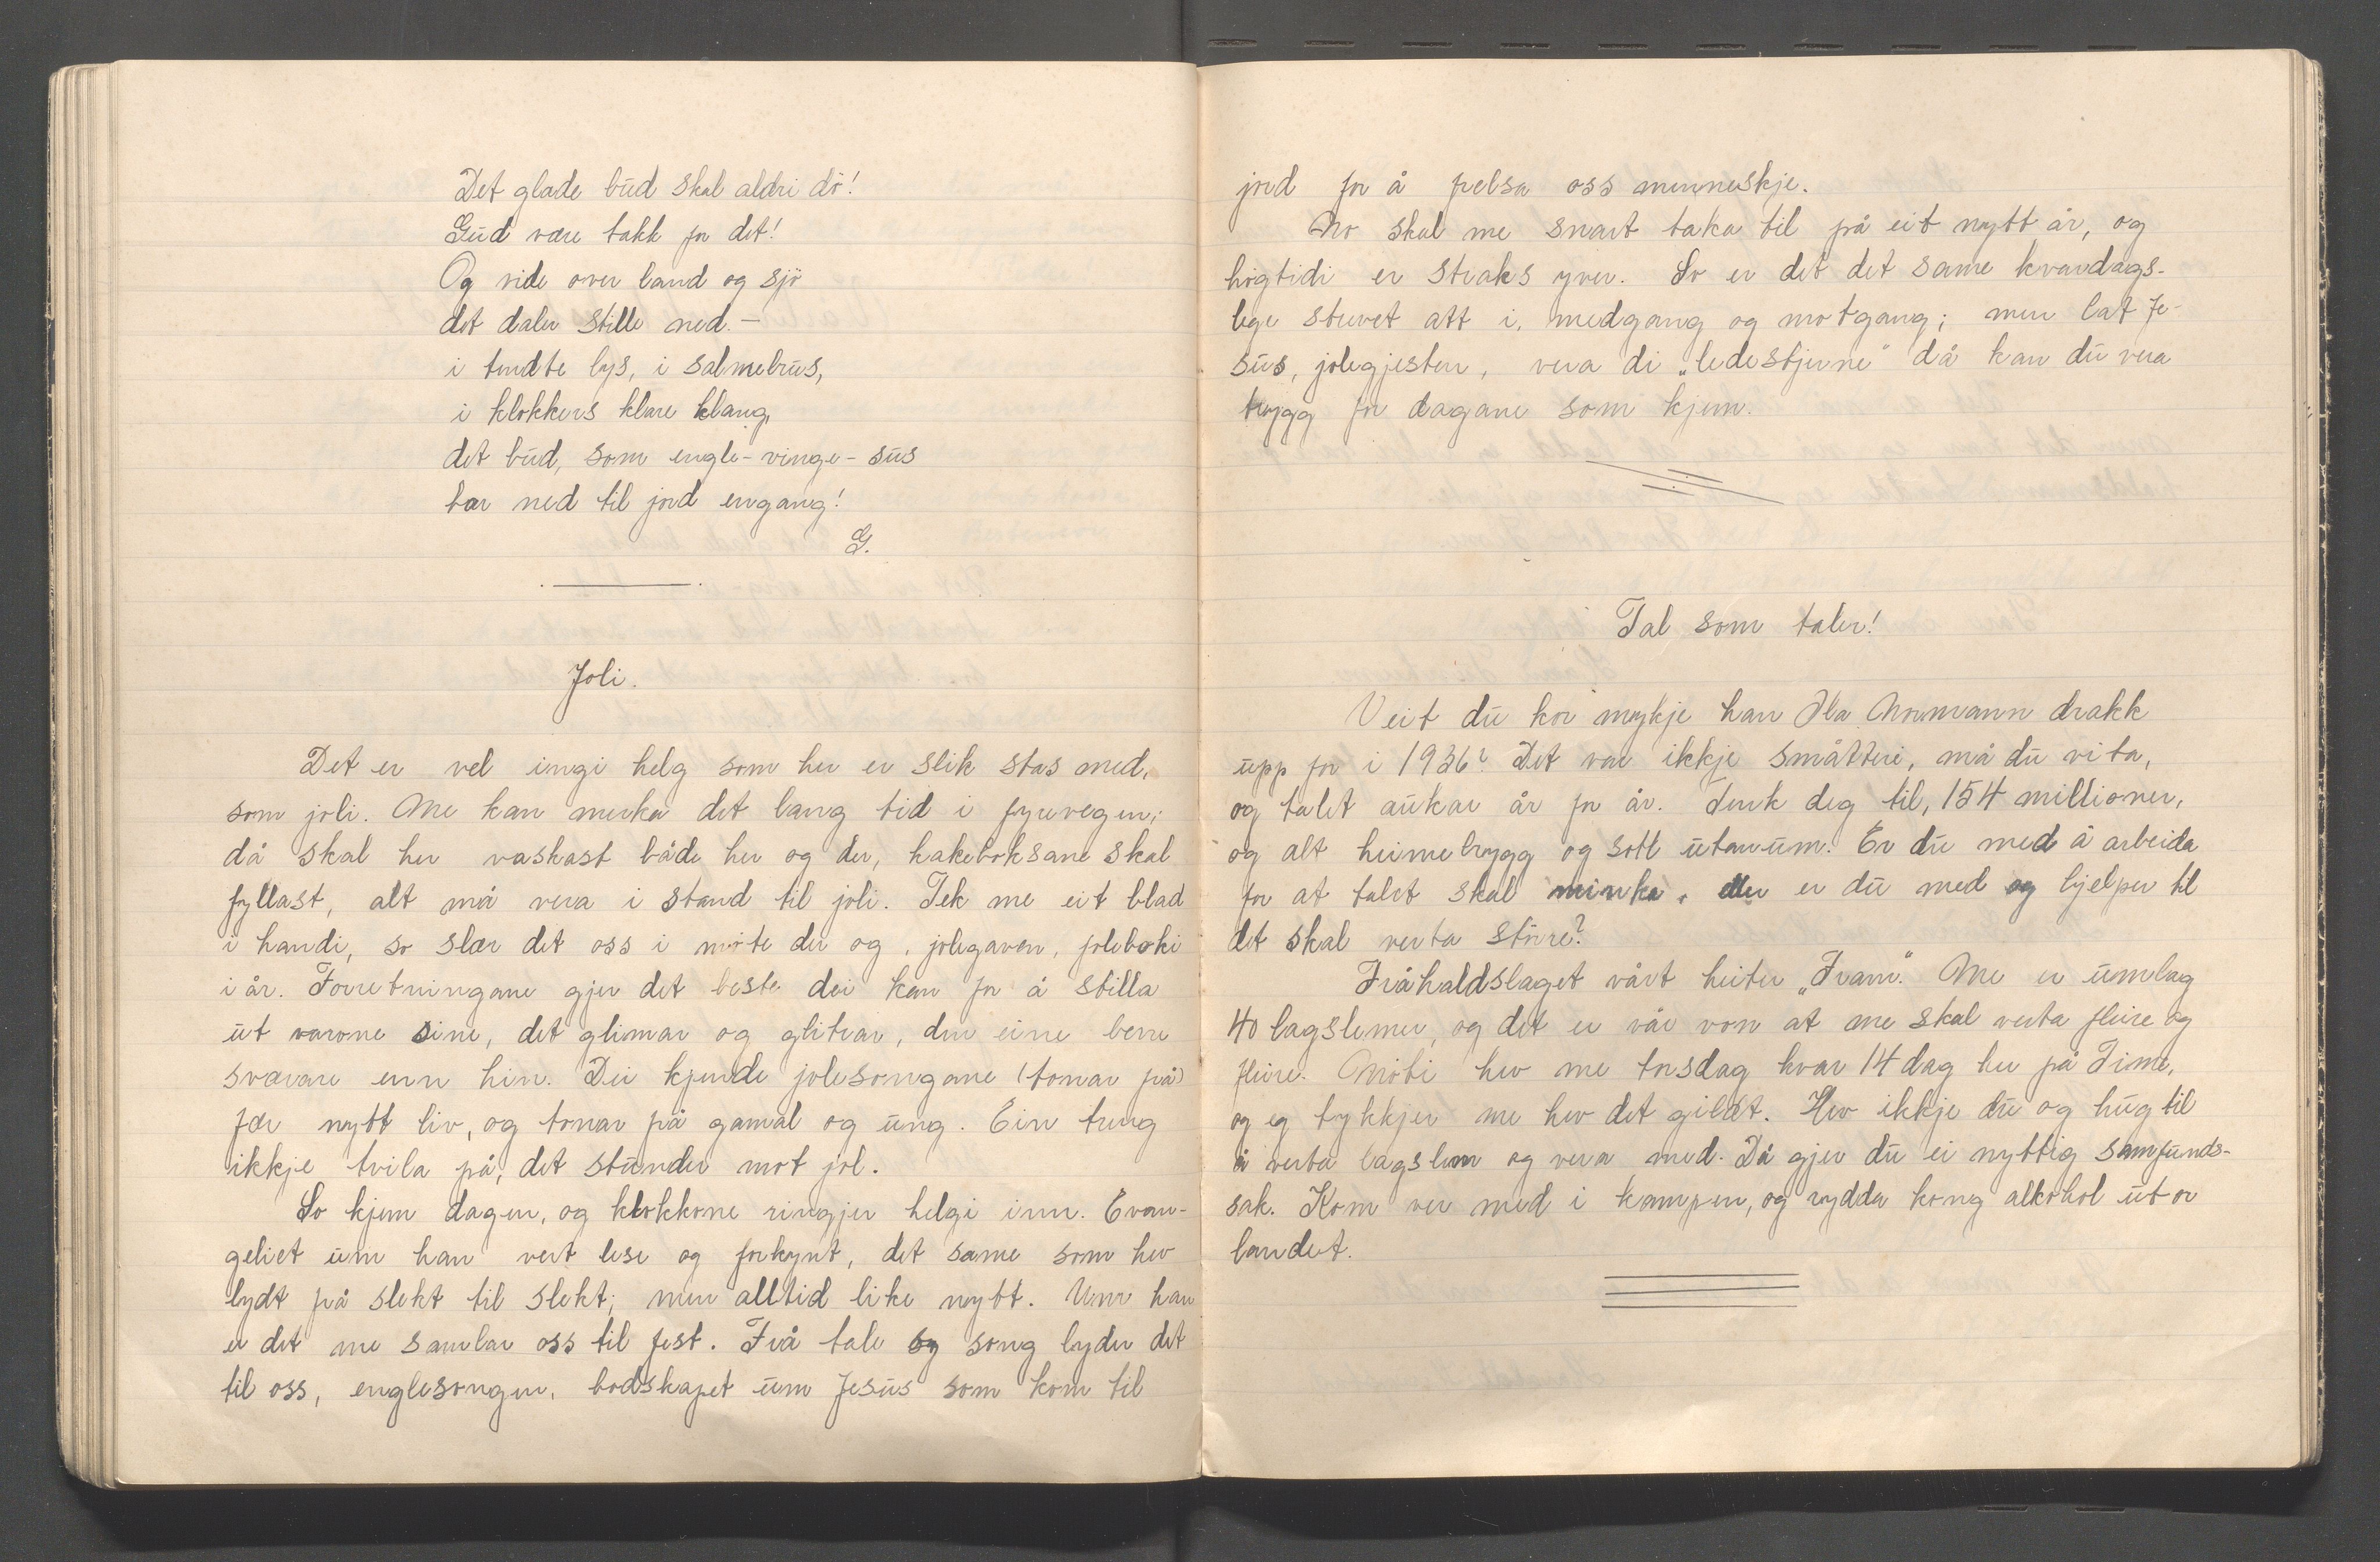 Det glade bud skal aldri dö!
Gud være takk for det!
Og vide over land og sjö
det daler stille ned. —
i tendte lys, i salmebrus,
i klokkers klare klang,
det bud, som engle-vinge-sus
bar ned til jord engang!
G.
Joli.
Det er vel ingi helg som her er slik stas med,
som joli. Me kan merka det lang tid i fyrevegen;
då skal her vaskast både her og der, kakeboksane skal
fyllast, alt må vera i stand til joli. Tek me eit blad
i handi, so slær det oss i möte der og, jolegaven, joleboki
i år. Forretningane gjer det beste dei kan for å stilla
ut varone sine, det glimar og glitrar, den eine berre
sværare enn hin. Dei kjende jolesongane (tonar på)
fær nytt liv, og tonar på gamal og ung. Ein treng
ikkje tvila på, det stunder mot jol.
So kjem dagen, og klokkone ringjer helgi inn. Evan-
geliet um han vert lese og forkynt, det same som hev
lydt på slekt til slekt; men alltid like nytt. Um han
er det me samlar oss til fest. Frå tale og song lyder det
til oss, englesongen, bodskapet um Jesus som kom til
jord for å frelsa oss menneskje.
No skal me snart taka til på eit nytt år, og
högtidi er straks yver. So er det det same kvardags-
lege strevet att i, medgang og motgang; men lat Je-
sus, jolegjesten, vera di „ledestjerne" då kan du vera
trygg for dagane som kjem.
Tal som taler!
Veit du kor mykje han Ola Normann drakk
upp for i 1936? Det var ikkje småtteri, må du vita,
og talet aukar år for år. Tenk deg til, 154 millioner,
og alt heimebrygg og sott utanum. Er du med å arbeida
for at talet skal minka, eller er du med og hjelper til
det skal verta större?
Fråhaldslaget vårt heiter „Fram". Me er umlag
40 lagslemer, og det er vår von at me skal verta fleire og
fleire. Möti hev me torsdag kvar 14 dag her på Time,
og eg tykkjer me hev det gildt. Hev ikkje du og hug til
å verta lagslem og vera med. Då gjer du ei nyttig samfunds-
sak. Kom ver med i kampen, og rydda kong alkohol ut or
landet.